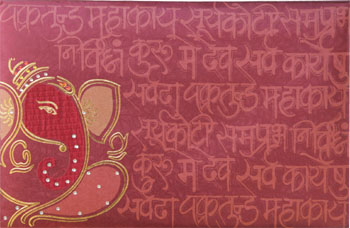 वक्रतुण्ड महाकाय सूर्यकोटि समप्रभ
निर्विघ्नं कुरु मे देव सर्व कार्येषु
सर्वदा वक्रतुण्ड महाकाय
सूर्यकोटि समप्रभ निर्विघ्नं
कुरु मे देव सर्व कार्येषु
सर्वदा वक्रतुण्ड महाकाय